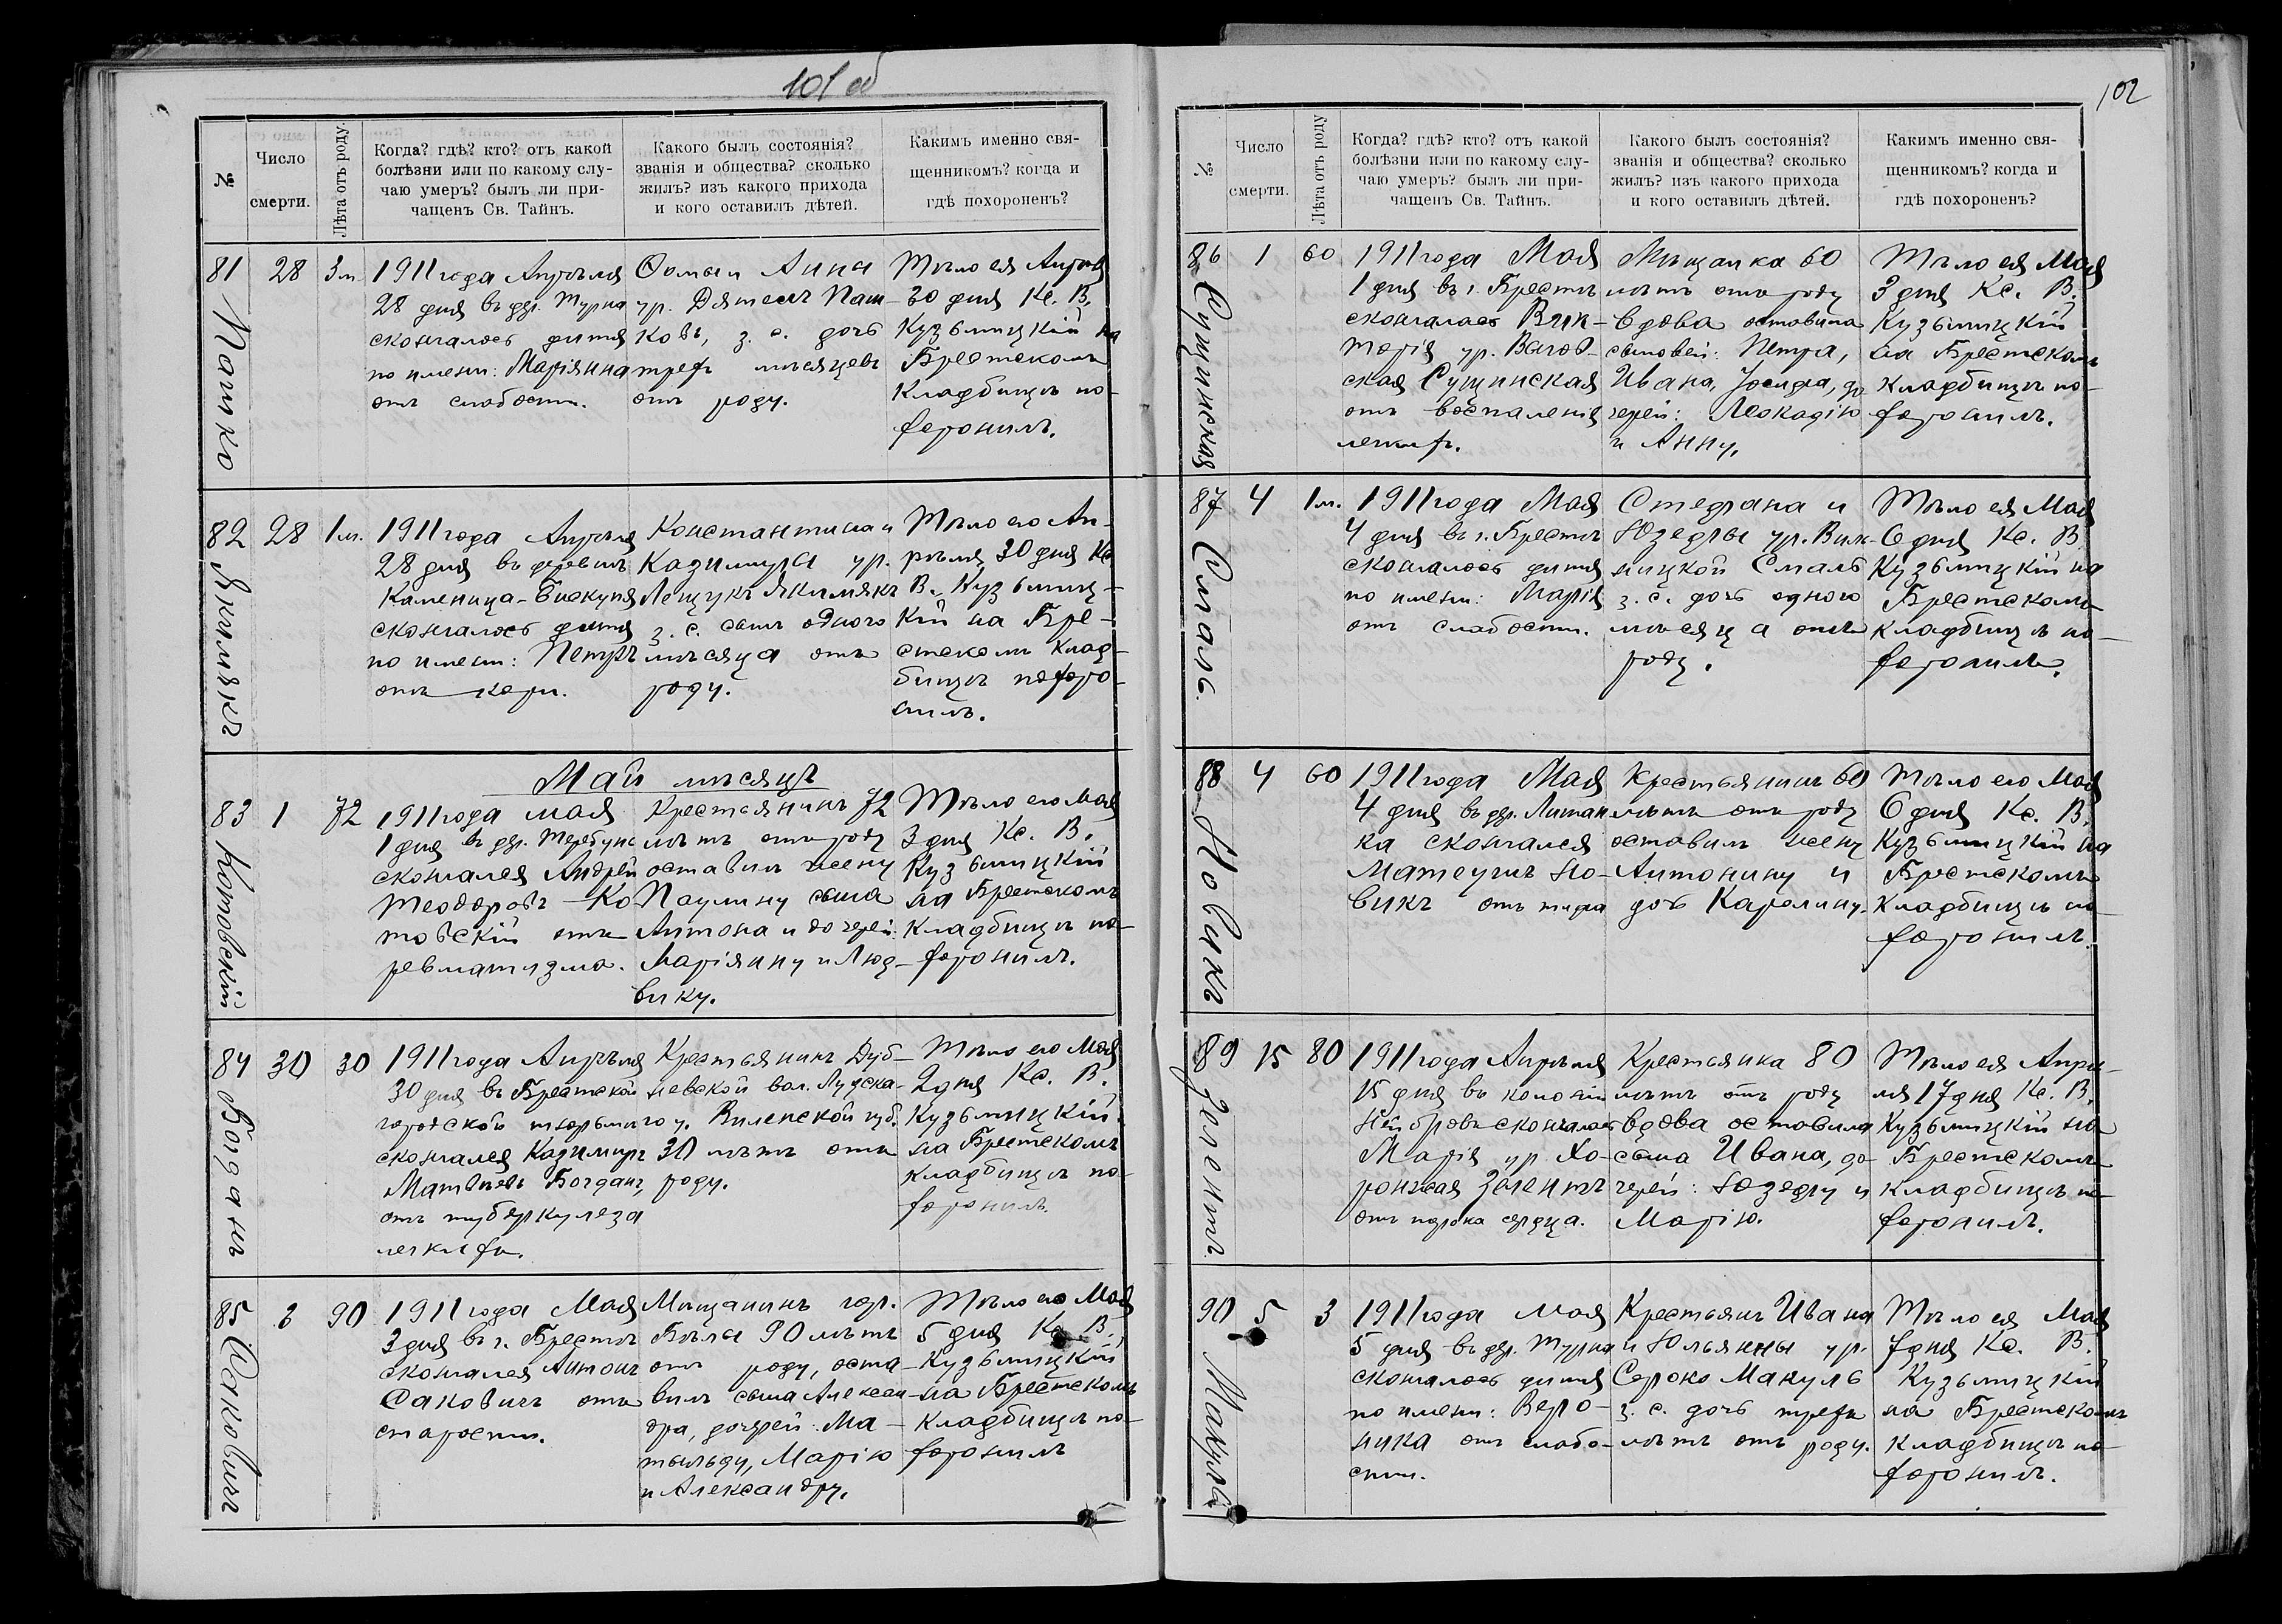 101 об
№
Число
смерти.
Лѣта отъ роду.
Когда? гдѣ? кто? отъ какой
болѣзни или по какому слу-
чаю умеръ? былъ ли при-
чащенъ Св. Тайнъ.
Какого былъ состоянія?
званія и общества? сколько
жилъ? изъ какого прихода
и кого оставилъ дѣтей.
Какимъ именно свя-
щенникомъ? когда и
гдѣ похороненъ?
81
Пашко
28
3 м.
1911 года Апрѣля
28 дня въ дер. Турна
скончалось дитя
по имени: Маріянна
отъ слабости.
Ѳомы и Анны
ур. Дятелъ Паш-
ковъ, з. с. дочь
трехъ мѣсяцевъ
отъ роду.
Тѣло ея Апрѣл
30 дня Кс. В.
Кузьмицкій на
Брестскомъ
кладбищѣ по-
хоронилъ.
82
Якимякъ
28
1 м.
1911 года Апрѣля
28 дня въ деревнѣ
Каменица-Бискупя
скончалось дитя
по имени: Петръ
отъ кори.
Константина и
Казимиры ур.
Лещукъ Якимякъ
з. с. сынъ одного
мѣсяца отъ
роду.
Тѣло его Ап-
рѣля 30 дня Кс
В. Кузьмиц-
кій на Бре-
стскомъ клад-
бищѣ похоро-
нилъ.
Май мѣсяцъ
83
Котовскій
1
72
1911 года мая
1 дня въ дер. Теребунь
скончался Андрей
Теодоровъ Ко-
товскій отъ
ревматизма.
Крестьянинъ 72
лѣтъ отъ роду
оставилъ жену
Паулину сына
Антона и дочерей:
Маріянну и Люд-
вику.
Тѣло его Мая
3 дня Кс. В.
Кузьмицкій
на Брестскомъ
кладбищѣ по-
хоронилъ.
84
Богданъ
30
30
1911 года Апрѣля
30 дня въ Брестской
городской тюрьмѣ
скончался Казимиръ
Матвѣевъ Богданъ,
отъ туберкулеза
легкихъ.
Крестьянинъ Дуб-
невской вол. Лидска-
го у. Виленской губ.
30 лѣтъ отъ
роду.
Тѣло его Мая
2 дня Кс. В.
Кузьмицкій
на Брестскомъ
кладбищѣ по-
хоронилъ.
85
Саковичъ
3
90
1911 года Мая
3 дня въ г. Брестѣ
скончался Антонъ
Саковичъ отъ
старости.
Мѣщанинъ гор.
Бѣлы 90 лѣтъ
отъ роду, оста-
вилъ сына Алексан-
дра, дочерей: Ма-
тыльду, Марію
и Александру.
Тѣло его Мая
5 дня Кс. В.
Кузьмицкій
на Брестскомъ
кладбищѣ по-
хоронилъ
102
№
Число
смерти.
Лѣта отъ роду
Когда? гдѣ? кто? отъ какой
болѣзни или по какому слу-
чаю умеръ? былъ ли при-
чащенъ Св. Тайнъ.
Какого былъ состоянія?
званія и общества? сколько
жилъ? изъ какого прихода
и кого оставилъ дѣтей.
Какимъ именно свя-
щенникомъ? когда и
гдѣ похороненъ?
86
Сущинская
1
60
1911 года Мая
1 дня въ г. Брестѣ
скончалась Вик-
торія ур.
ская Сущинская
отъ воспаленія
легкихъ.
Мѣщанка 60
лѣтъ отъ роду
вдова оставила
сыновей: Петра,
Ивана, Іосифа, до
черей: Леокадію
и Анну.
Тѣло ея Мая
3 дня Кс. В.
Кузьмицкій
на Брестскомъ
кладбищѣ по-
хоронилъ.
87
Смаль.
4
1 м.
1911 года Мая
4 дня въ г. Брестѣ
скончалось дитя
по имени: Марія
отъ слабости.
Стефана и
Юзефы ур. Вин-
ницкой Смаль
з. с. дочь одного
мѣсяца отъ
роду.
Тѣло ея Мая
6 дня Кс. В
Кузьмицкій на
Брестскомъ
кладбищѣ по-
хоронилъ.
88
Новикъ
4
60
1911 года Мая
4 дня въ дер. Литви
ка скончался
Матеушъ Но-
викъ отъ тифа
Крестьянинъ 60
лѣтъ отъ роду
оставилъ жену
Антонину и
дочь Каролину.
Тѣло его Мая
6 дня Кс. В.
Кузьмицкій на
Брестскомъ
кладбищѣ по-
хоронилъ.
89
Зелентъ
15
80
1911 года Апрѣля
15 дня въ колоніи
Нейбровъ скончалась
Марія ур. Хо-
ронжая Зелентъ
отъ порока сердца.
Крестьянка 80
лѣтъ отъ роду
вдова оставила
сына Ивана, до-
черей: Юзефу и
Марію.
Тѣло ея Апрѣ-
ля 17 дня Кс. В.
Кузьмицкій на
Брестскомъ
кладбищѣ по-
хоронилъ.
90
Макуль
5
3
1911 года мая
5 дня въ дер. Турна
скончалось дитя
по имени: Веро-
ника отъ слабо-
сти.
Крестьянъ Ивана
и Юльянны ур.
Сероко Макуль
з. с. дочь трехъ
лѣтъ отъ роду.
Тѣло ея Мая
7 дня Кс. В.
Кузьмицкій
на Брестскомъ
кладбищѣ по-
хоронилъ.